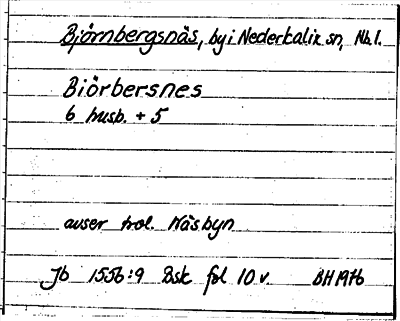 Björnbergsnäs, by i Nederkalix sn, Nb l.
Biörbersnes
6 husb. + 5
avser trol. Näsbyn
Jb 1556:9 Bsk fol 10 v. BH 1976